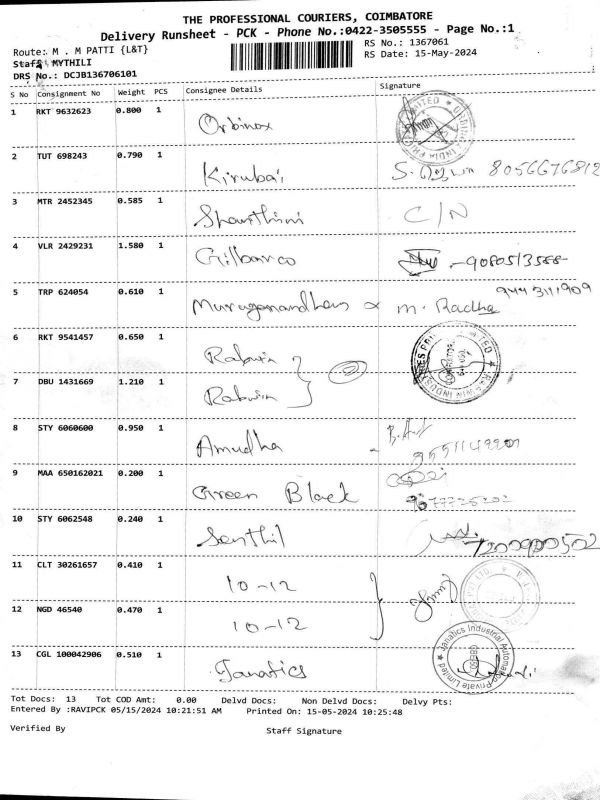 THE PROFESSIONAL COURIERS, COIMBATORE
Delivery Runsheet - PCK - Phone No.:0422-3505555 - Page No.:1
Route: M . M PATTI {L&T} RS No.: 1367061
Staff: MYTHILI RS Date: 15-May-2024
DRS No.: DCJB136706101
S No Consignment No Weight PCS Consignee Details Signature
1 RKT 9632623 0.800 1 Orbinox
2 TUT 698243 0.790 1 Kirubai 8056676812
3 MTR 2452345 0.585 1 Shanthini C/N
4 VLR 2429231 1.580 1 Gilbarco
5 TRP 624054 0.610 1 M. Radha
6 RKT 9541457 0.650 1
7 DBU 1431669 1.210 1
8 STY 6060600 0.950 1 Amudha
9 MAA 650162021 0.200 1 Green Black
10 STY 6062548 0.240 1 Senthil
11 CLT 30261657 0.410 1 10-12
12 NGD 46540 0.470 1 10-12
13 CGL 100042906 0.510 1 Janatics Janatics Industrial Private Limited
Tot Docs: 13 Tot COD Amt: 0.00 Delvd Docs: Non Delvd Docs: Delvy Pts:
Entered By :RAVIPCK 05/15/2024 10:21:51 AM Printed On: 15-05-2024 10:25:48
Verified By Staff Signature